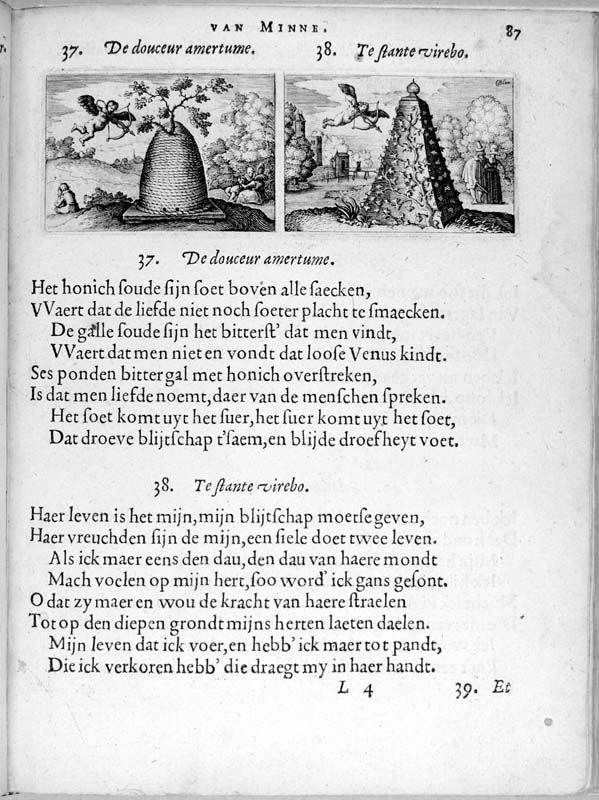 VAN MINNE. 87
37. De douceur amertume. 38. Te stante virebo.
37. De douceur amertume.
Het honich soude sijn soet boven alle saecken,
VVaert dat de liefde niet noch soeter placht te smaecken.
De galle soude sijn het bitterst' dat men vindt,
VVaert dat men niet en vondt dat loose Venus kindt.
Ses ponden bitter gal met honich overstreken,
Is dat men liefde noemt, daer van de menschen spreken.
Het soet komt uyt het suer, het suer komt uyt het soet,
Dat droeve blijtschap t'saem, en blijde droefheyt voet.
38. Te stante virebo.
Haer leven is het mijn, mijn blijtschap moetse geven,
Haer vreuchden sijn de mijn, een siele doet twee leven.
Als ick maer eens den dau, den dau van haere mondt
Mach voelen op mijn hert, soo word' ick gans gesont.
O dat zy maer en wou de kracht van haere straelen
Tot op den diepen grondt mijns herten laeten daelen.
Mijn leven dat ick voer, en hebb' ick maer tot pandt,
Die ick verkoren hebb' die draegt my in haer handt.
L 4 39. Et